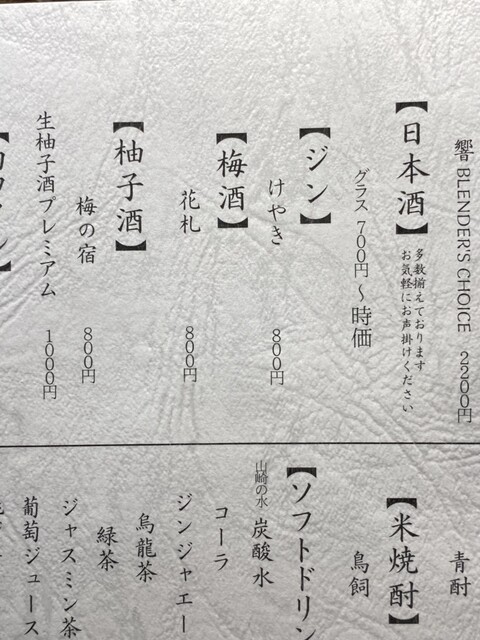 響 BLENDER'S CHOICE 2200円
【日本酒】
多数揃えております
お気軽にお声掛けください
グラス 700円〜時価
【ジン】
けやき 800円
【梅酒】
花札 800円
【柚子酒】
梅の宿 800円
生柚子酒プレミアム 1000円
青酎
【米焼酎】
鳥飼
【ソフトドリン
山崎の水 炭酸水
コーラ
ジンジャエー
烏龍茶
緑茶
ジャスミン茶
葡萄ジュース